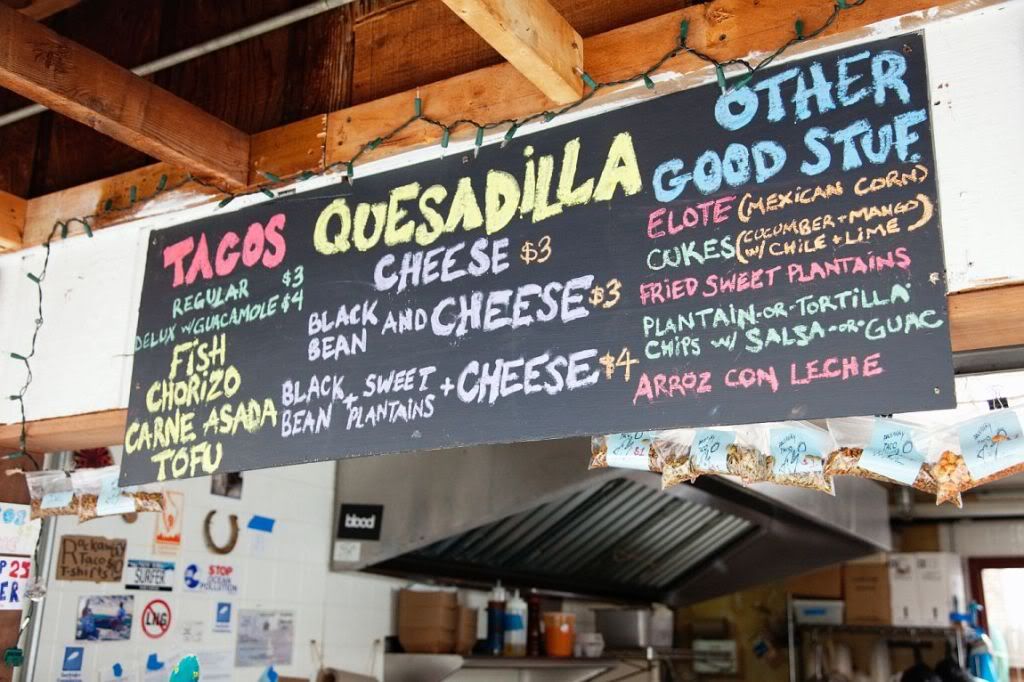 TACOS
REGULAR $3
DELUX w/GUACAMOLE $4
FISH
CHORIZO
CARNE ASADA
TOFU
QUESADILLA
CHEESE $3
BLACK BEAN AND CHEESE $3
BLACK BEAN + SWEET PLANTAINS + CHEESE $4
OTHER
GOOD STUF
ELOTE (MEXICAN CORN)
CUKES (CUCUMBER + MANGO w/ CHILE + LIME)
FRIED SWEET PLANTAINS
PLANTAIN-OR-TORTILLA
CHIPS w/ SALSA-OR-GUAC
ARROZ CON LECHE
blood
Rockaway
Taco
T-shirts
SURFER
STOP
OCEAN
POLLUTION
LNG